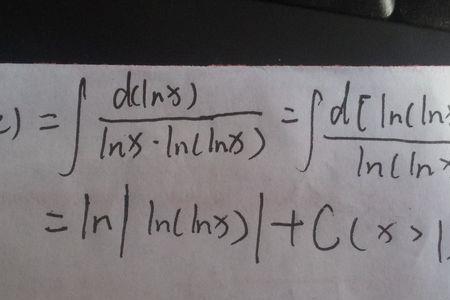 ) = ∫ d(lnx) / lnx · ln(lnx) = ∫ d[ln(lnx / ln(ln
= ln| ln(lnx)| + C (x > 1